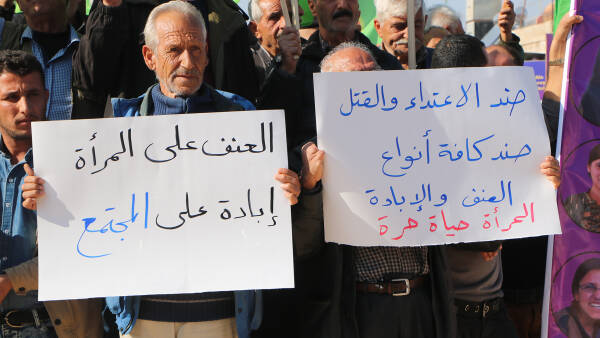 العنف على المرأة
إبادة على المجتمع
ضد الاعتداء والقتل
ضد كافة أنواع
العنف والإبادة
المرأة حياة حرة